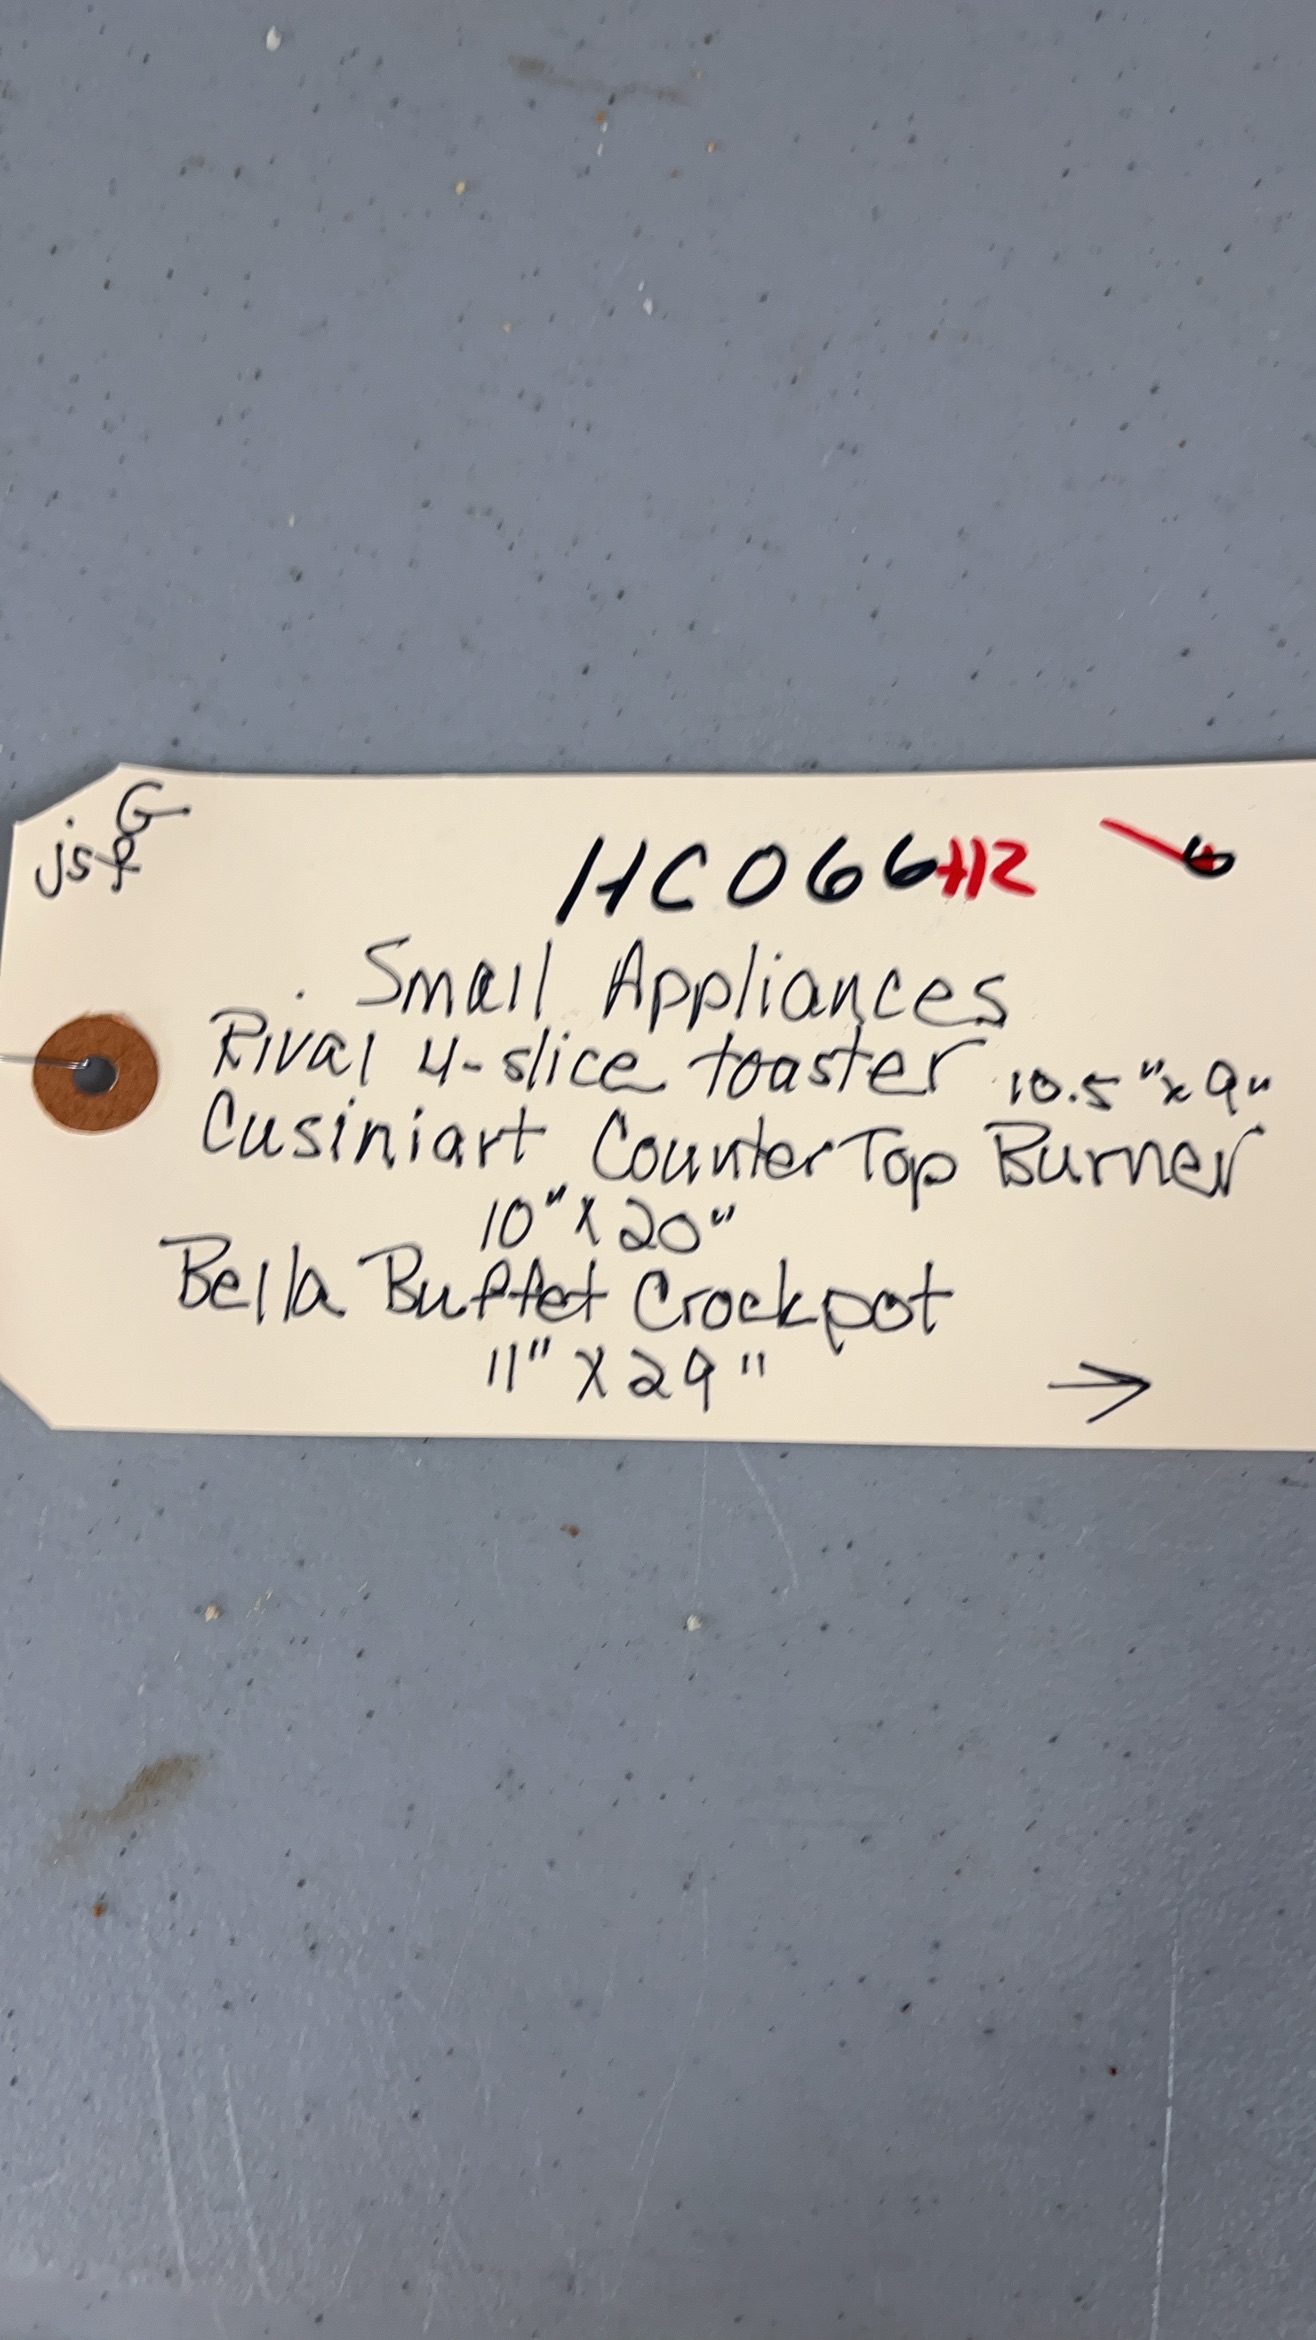 G
js
HC066 H2
Small Appliances
Rival 4-slice toaster 10.5" x 9"
Cusiniart CounterTop Burner
10" X 20"
Bella Buffet Crockpot
11" X 29"
→